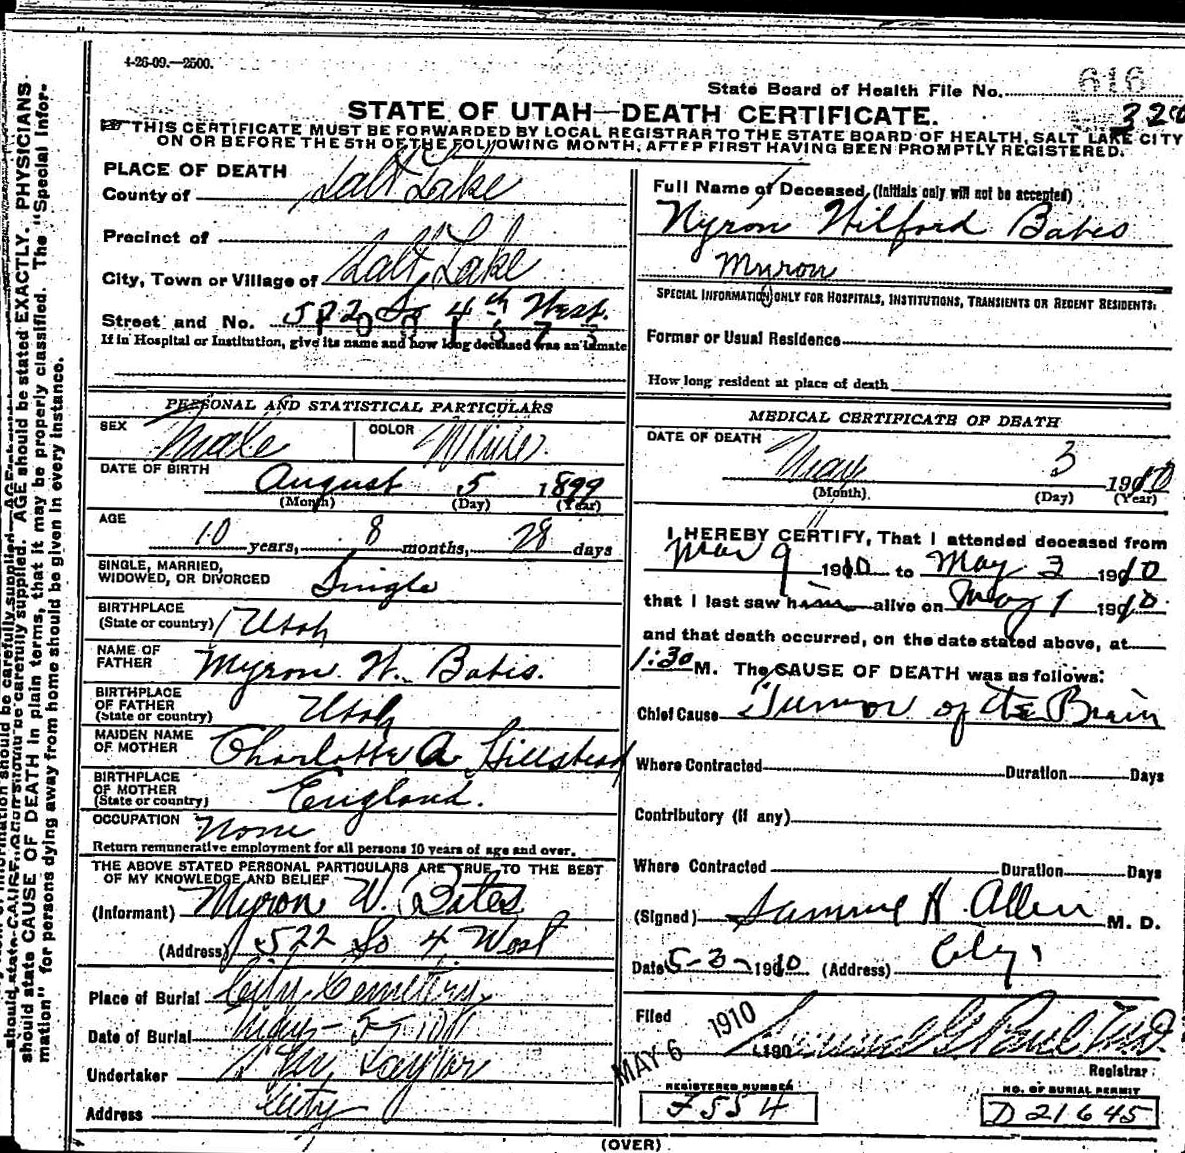 4-26-09.—2500.
State Board of Health File No. 616
STATE OF UTAH—DEATH CERTIFICATE.
THIS CERTIFICATE MUST BE FORWARDED BY LOCAL REGISTRAR TO THE STATE BOARD OF HEALTH, SALT LAKE CITY
ON OR BEFORE THE 5TH OF THE FOLLOWING MONTH, AFTER FIRST HAVING BEEN PROMPTLY REGISTERED.
PLACE OF DEATH
County of Salt Lake
Precinct of
City, Town or Village of Salt Lake
Street and No. 522 So 4th West.
If in Hospital or Institution, give its name and how long deceased was an inmate
Full Name of Deceased, (Initials only will not be accepted)
Myron Wilford Bates
Myron
SPECIAL INFORMATION ONLY FOR HOSPITALS, INSTITUTIONS, TRANSIENTS OR RECENT RESIDENTS:
Former or Usual Residence
How long resident at place of death
PERSONAL AND STATISTICAL PARTICULARS
SEX Male COLOR White.
DATE OF BIRTH
August 5 1899
(Month) (Day) (Year)
AGE
10 years, 8 months, 28 days
SINGLE, MARRIED,
WIDOWED, OR DIVORCED Single
BIRTHPLACE
(State or country) Utah
NAME OF
FATHER Myron W. Bates.
BIRTHPLACE
OF FATHER
(State or country) Utah
MAIDEN NAME
OF MOTHER Charlotte A Hillstead
BIRTHPLACE
OF MOTHER
(State or country) England.
OCCUPATION None
Return remunerative employment for all persons 10 years of age and over.
THE ABOVE STATED PERSONAL PARTICULARS ARE TRUE TO THE BEST
OF MY KNOWLEDGE AND BELIEF
(Informant) Myron W. Bates
(Address) 522 So 4 West
Place of Burial City Cemetery
Date of Burial May-5-1910
Undertaker Taylor
Address City
MEDICAL CERTIFICATE OF DEATH
DATE OF DEATH
May 3 1910
(Month). (Day) (Year)
I HEREBY CERTIFY, That I attended deceased from
Mar 9 1910 to May 3 1910
that I last saw him alive on May 1 1910
and that death occurred, on the date stated above, at
1:30 M. The CAUSE OF DEATH was as follows:
Chief Cause Tumor of the Brain
Where Contracted Duration Days
Contributory (if any)
Where Contracted Duration Days
(Signed) Samuel H. Allen M. D.
Date 5-3-1910 (Address) City
Filed
MAY 6 1910 190 Samuel G. Paul M.D.
Registrar
REGISTERED NUMBER
F554
NO. OF BURIAL PERMIT
D21645
(OVER)
should state CAUSE OF DEATH in plain terms, that it may be properly classified. The "Special Infor-
mation" for persons dying away from home should be given in every instance.